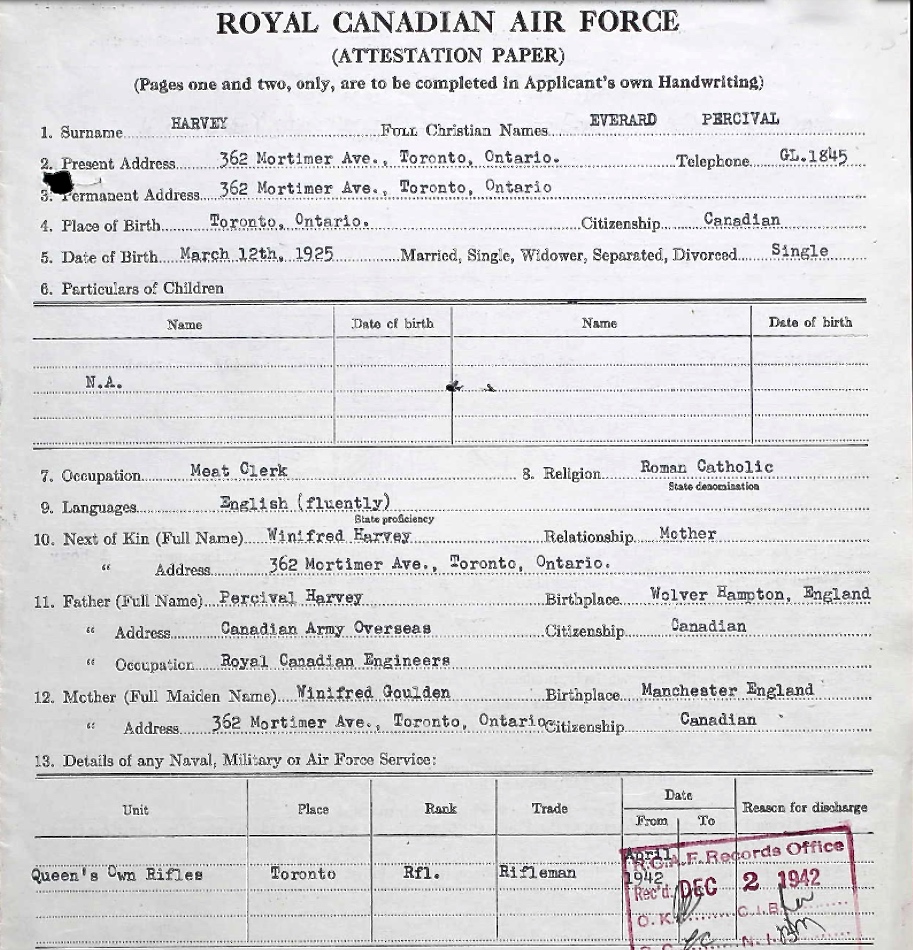 ROYAL CANADIAN AIR FORCE
(ATTESTATION PAPER)
(Pages one and two, only, are to be completed in Applicant's own Handwriting)
1. Surname HARVEY Full Christian Names EVERARD PERCIVAL
2. Present Address 362 Mortimer Ave., Toronto, Ontario. Telephone GL.1845
3. Permanent Address 362 Mortimer Ave., Toronto, Ontario
4. Place of Birth Toronto, Ontario. Citizenship Canadian
5. Date of Birth March 12th, 1925 Married, Single, Widower, Separated, Divorced Single
6. Particulars of Children
Name Date of birth Name Date of birth
N.A.
7. Occupation Meat Clerk 8. Religion Roman Catholic
State denomination
9. Languages English (fluently)
State proficiency
10. Next of Kin (Full Name) Winifred Harvey Relationship Mother
" Address 362 Mortimer Ave., Toronto, Ontario.
11. Father (Full Name) Percival Harvey Birthplace Wolver Hampton, England
" Address Canadian Army Overseas Citizenship Canadian
" Occupation Royal Canadian Engineers
12. Mother (Full Maiden Name) Winifred Goulden Birthplace Manchester England
" Address 362 Mortimer Ave., Toronto, Ontario Citizenship Canadian
13. Details of any Naval, Military or Air Force Service:
Unit Place Rank Trade Date Reason for discharge
From To
Queen's Own Rifles Toronto Rfl. Rifleman April 1942
R.C.A.F. Records Office
Rec'd. DEC 2 1942
O.K. C.I.B.